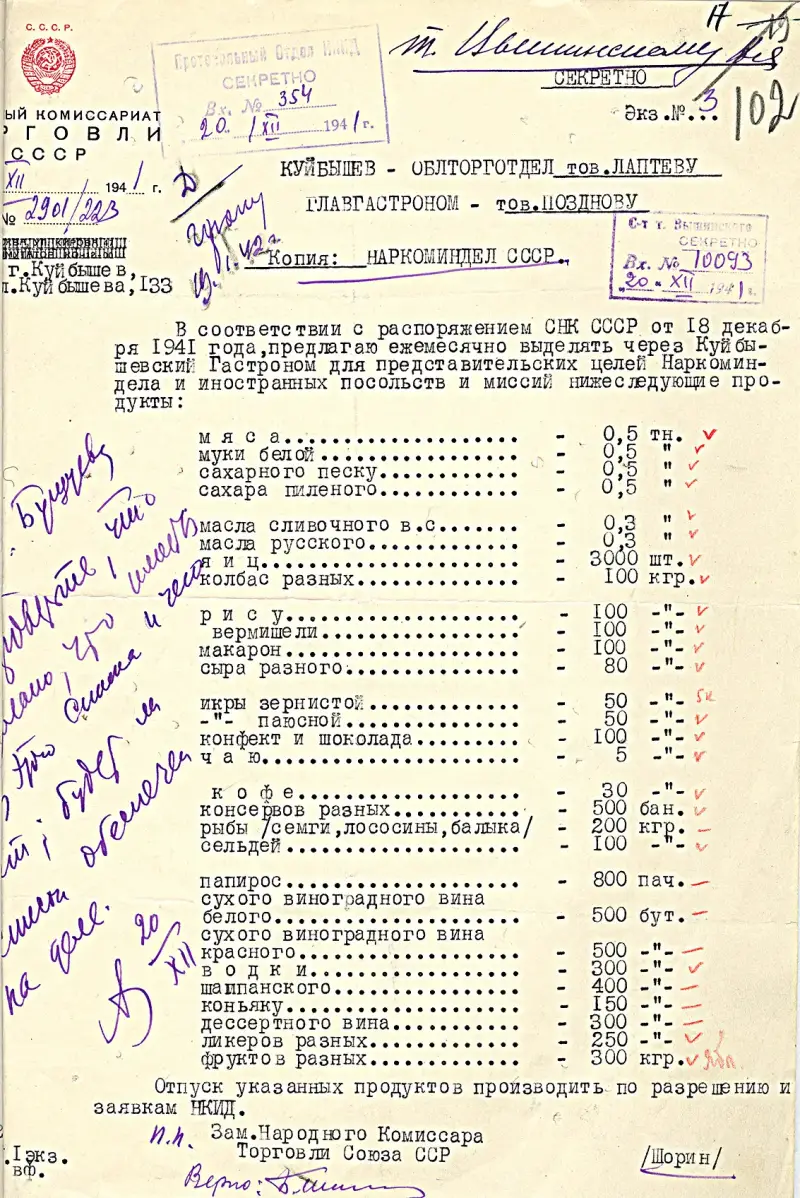 С. С. С. Р.
т. Вышинскому
СЕКРЕТНО
Экз.№..3
102
Протокольный Отдел НКИД
СЕКРЕТНО
Вх. № 354
20. XII 1941 г.
ЫЙ КОМИССАРИАТ
РГОВЛИ
СССР
XII 1941 г.
№ 2901/223
г.Куйбышев,
л.Куйбышева,133
КУЙБЫШЕВ - ОБЛТОРГОТДЕЛ тов.ЛАПТЕВУ
ГЛАВГАСТРОНОМ - тов.ПОЗДНОВУ
Копия: НАРКОМИНДЕЛ СССР.
С-т т. Вышинского
СЕКРЕТНО
Вх. № 10093
"20" XII 1941 г.
Д
19.1.42г
В соответствии с распоряжением СНК СССР от 18 декаб-
ря 1941 года,предлагаю ежемесячно выделять через Куйбы-
шевский Гастроном для представительских целей Наркомин-
дела и иностранных посольств и миссий нижеследующие про-
дукты:
мяса.................... - 0,5 тн.
муки белой................. - 0,5 "
сахарного песку............ - 0,5 "
сахара пиленого............ - 0,5 "
масла сливочного в.с....... - 0,3 "
масла русского............. - 0,3 "
яиц...................... - 3000 шт.
колбас разных.............. - 100 кгр.
рису.................... - 100 -"-
вермишели................. - 100 -"-
макарон.................... - 100 -"-
сыра разного............... - 80 -"-
икры зернистой............. - 50 -"- 5к
-"- паюсной............... - 50 -"-
конфект и шоколада......... - 100 -"-
чаю...................... - 5 -"-
кофе................... - 30 -"-
консервов разных........... - 500 бан.
рыбы /семги,лососины,балыка/ - 200 кгр.
сельдей.................... - 100 -"-
папирос.................... - 800 пач.
сухого виноградного вина
белого..................... - 500 бут.
сухого виноградного вина
красного................... - 500 -"-
водки.................. - 300 -"-
шампанского................ - 400 -"-
коньяку.................... - 150 -"-
дессертного вина........... - 300 -"-
ликеров разных............. - 250 -"-
фруктов разных............. - 300 кгр.
что
и
будет ли
обеспечен
на деле.
20
XII
Отпуск указанных продуктов производить по разрешению и
заявкам НКИД.
п.п. Зам.Народного Комиссара
Торговли Союза ССР
/Шорин/
.1экз.
вф.
Верно: